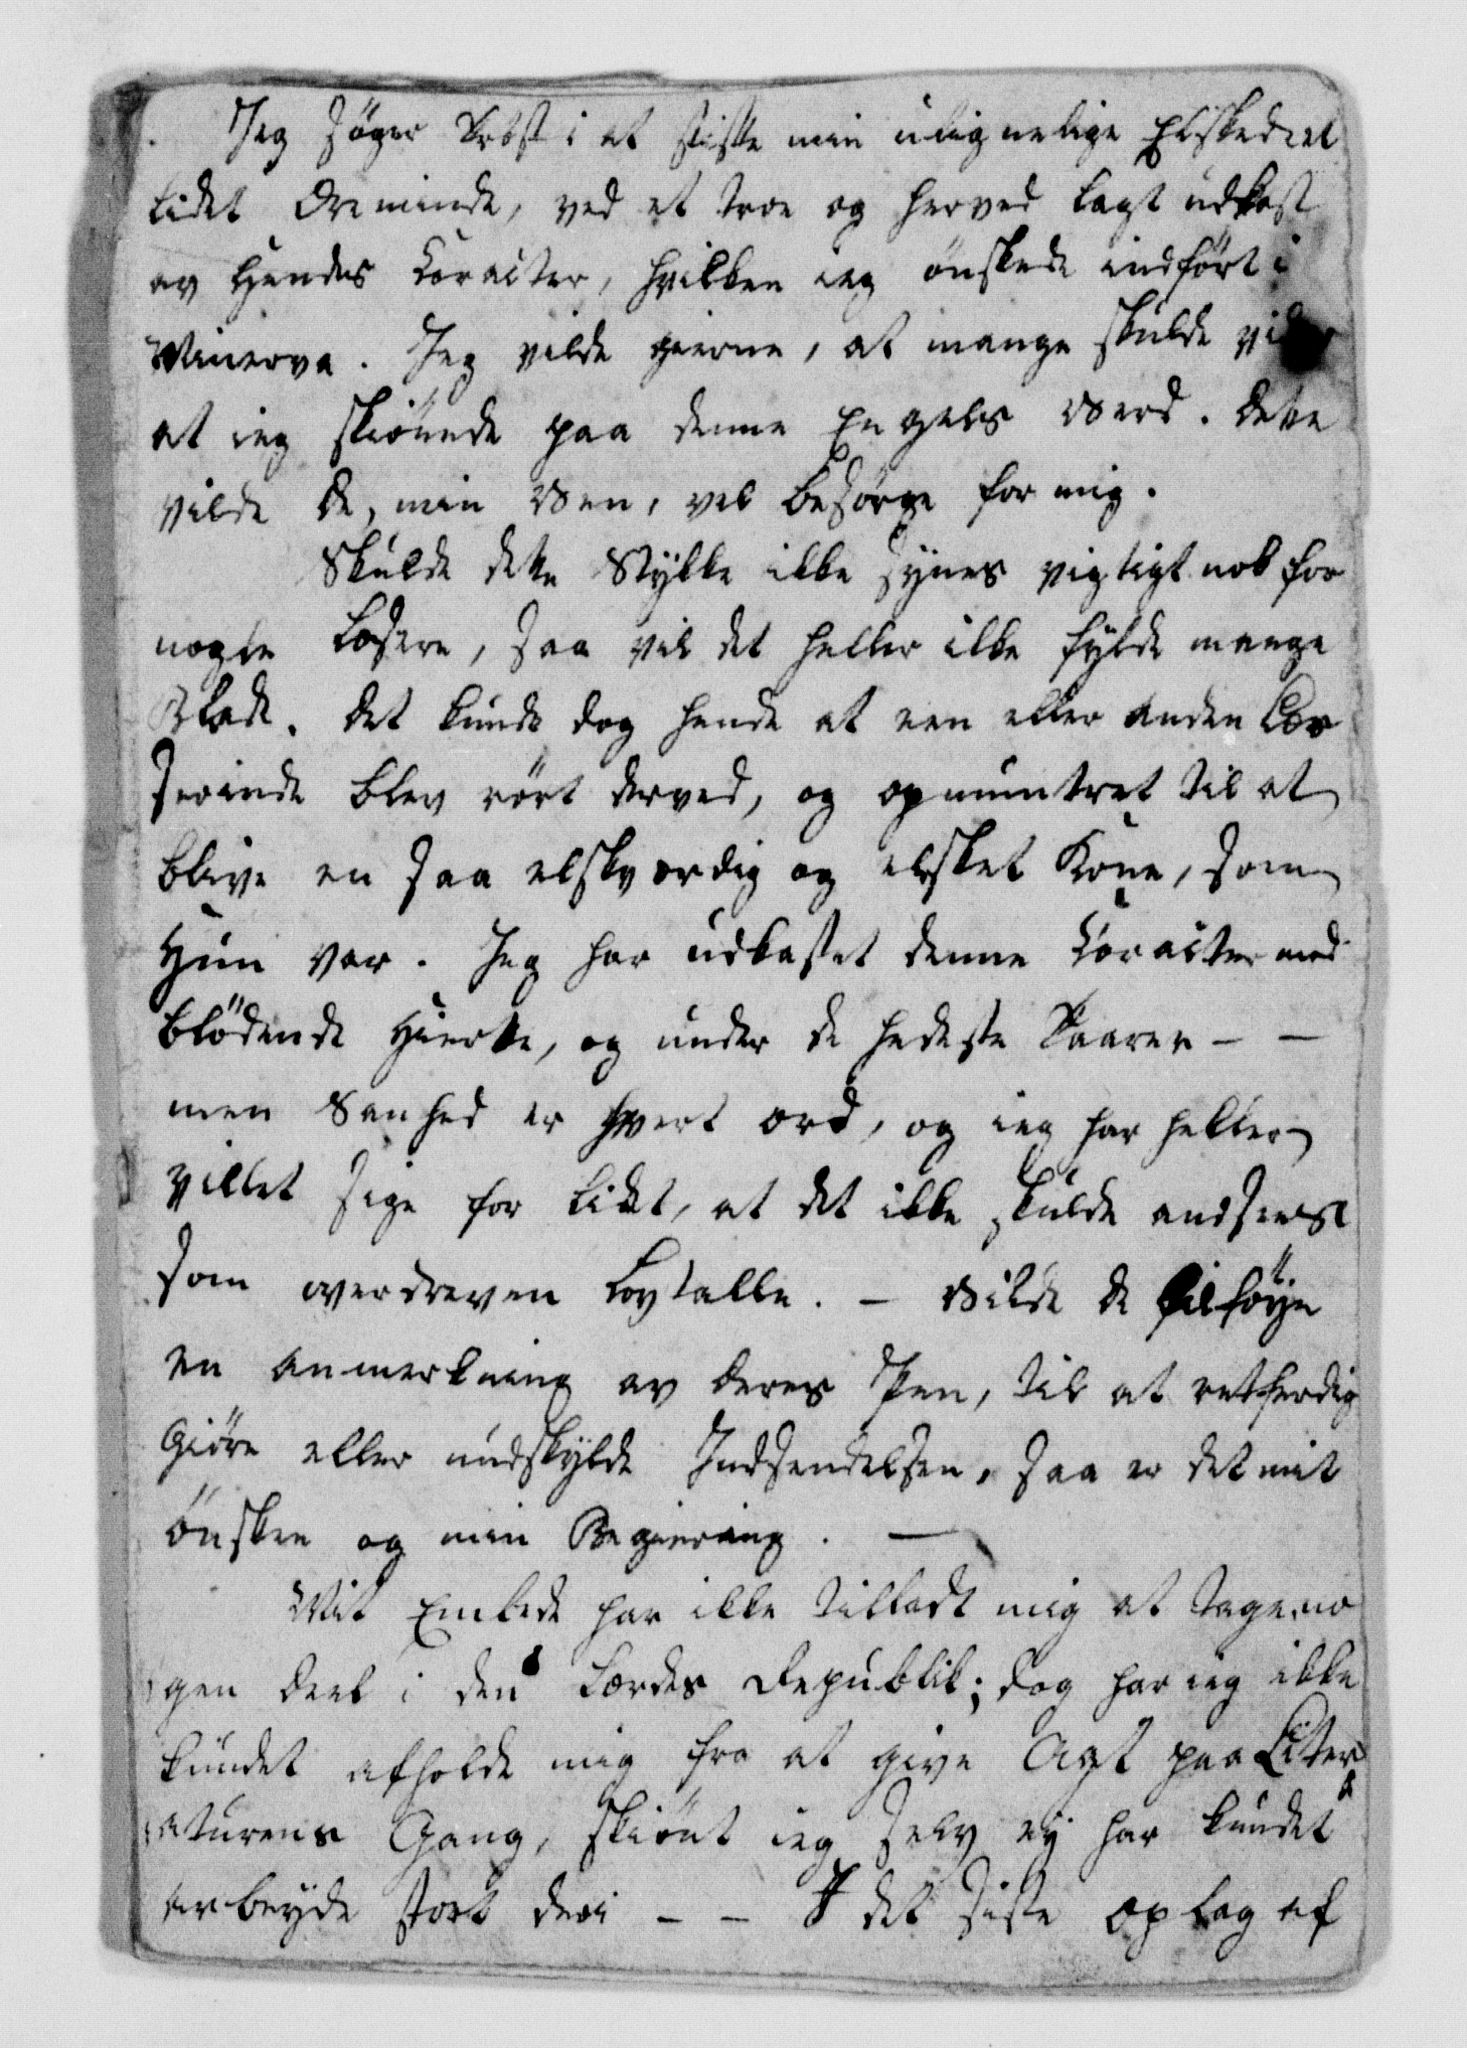 Jeg söger Tröst i at stifte min ulignelige Elskede et
lidet Æreminde, ved et troe og herved lagt udkast
av Hendes Caracter, hvilken ieg önskede indfört i
Minerva. Jeg vilde gierne, at mange skulde vide
at ieg skiönnede paa denne Engels Værd. dette
vilde De, min Ven, vel besörge for mig.
Skulde dette Stykke ikke synes vigtigt nok for
nogle Læsere, saa vil det heller ikke fylde mange
Blade. det kunde dog hende at een eller anden Læ
serinde blev rört derved, og opmuntret til at
blive en saa elskværdig og elsket Kone, som
Hun var. Jeg har udkastet denne Caracter med
blödende Hierte, og under de hedeste Taarer - -
men Sanhed er hvert ord, og ieg har heller
villet sige for lidet, at det ikke skulde andsees
som overdreven Lovtalle. - Vilde De tilföye
en anmerkning av deres Pen, til at retferdig
giöre eller undskylde Indsendelsen, saa er det mit
önske og min Begiering. -
Mit Embede har ikke tilladt mig at tage no
gen deel i den Lærdes Republik; dog har ieg ikke
kundet afholde mig fra at give Agt paa Liter
aturens Gang, skiönt ieg selv ey har kundet
arbeyde stort deri - - I det siste oplag af